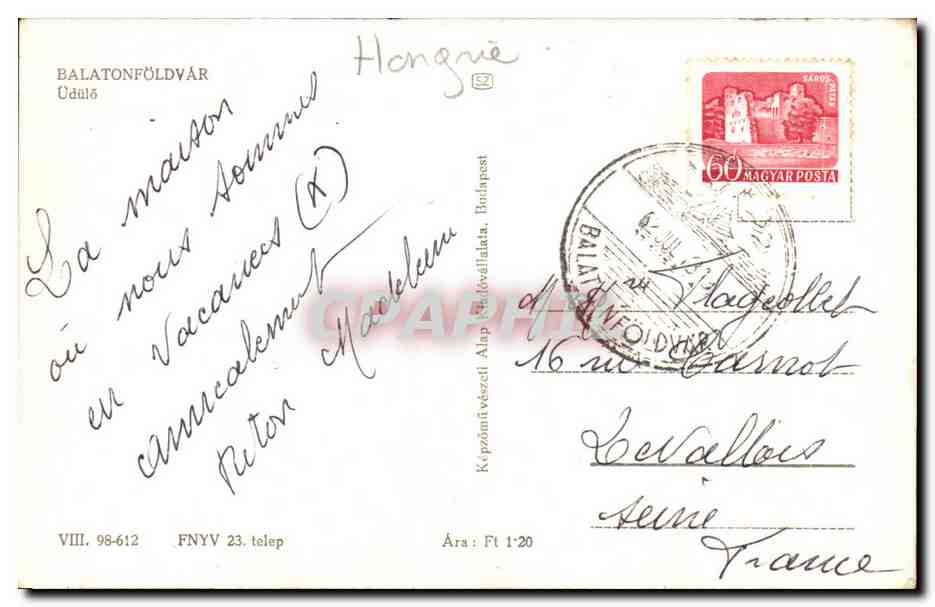 Hongrie
BALATONFÖLDVÁR
Üdülő
SZ
La maison
où nous sommes
en vacances (X)
amicalement
Madeleine
Reton
Képzőművészeti Alap Kiadóvállalata, Budapest
SÁROSPATAK
60 MAGYAR POSTA
BALATONFÖLDVÁR
CPAPHIL
16 rue Carnot
Levallois
Seine
France
VIII. 98-612 FNYV 23. telep Ára: Ft 1·20